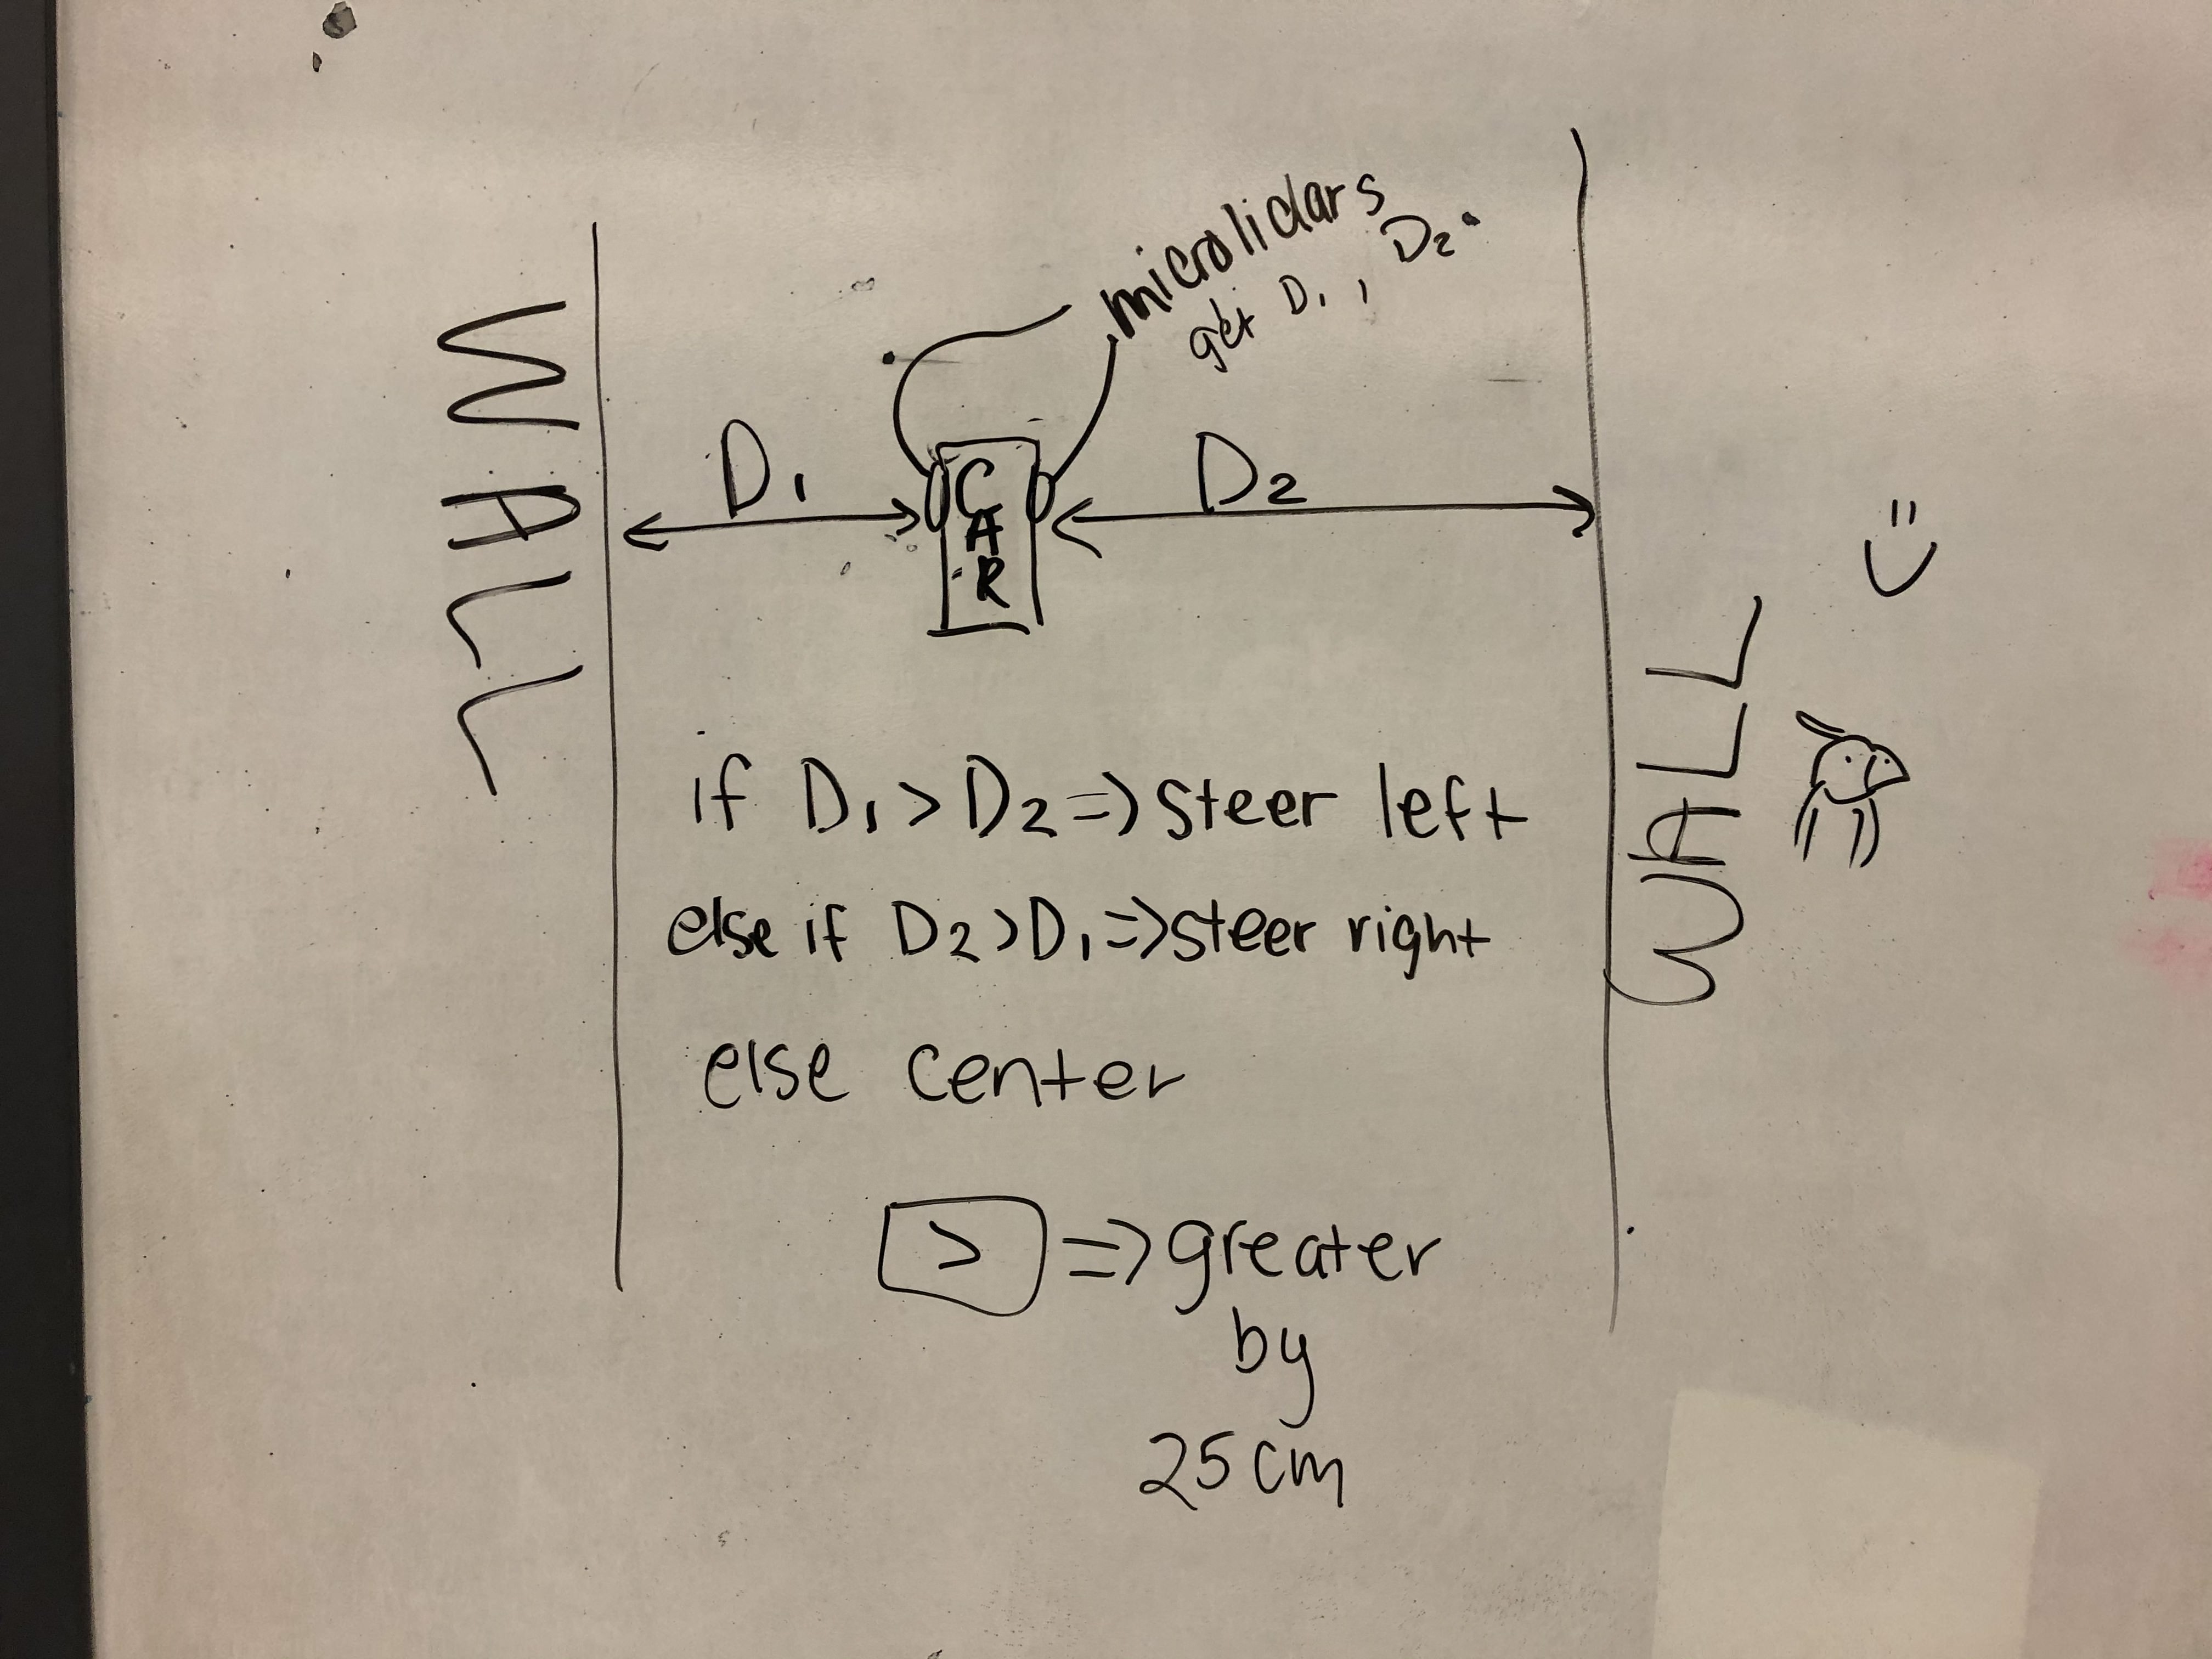 microlidars
get D1, D2.
WALL
D1
CAR
D2
WALL
if D1 > D2 => steer left
else if D2 > D1 => steer right
else center
> => greater
by
25 cm